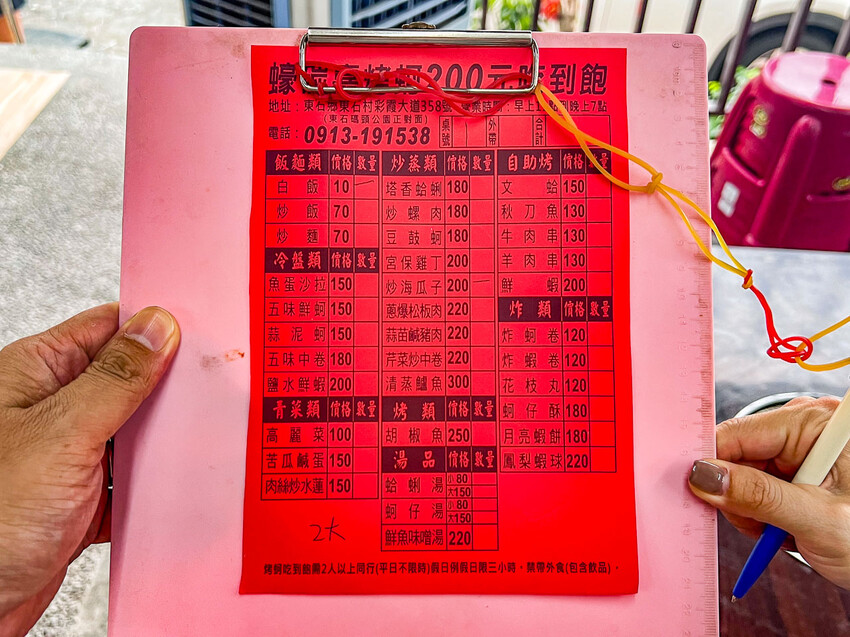 蠔蹣烤蚵200元吃到飽
地址：東石鄉東石村彩霞大道358號 營業時間：早上11點到晚上7點
(東石碼頭公園正對面)
電話：0913-191538
桌號 外帶 合計
飯麵類 價格 數量
白飯 10
炒飯 70
炒麵 70
冷盤類 價格 數量
魚蛋沙拉 150
五味鮮蚵 150
蒜泥蚵 150
五味中卷 180
鹽水鮮蝦 200
青菜類 價格 數量
高麗菜 100
苦瓜鹹蛋 150
肉絲炒水蓮 150
炒蒸類 價格 數量
塔香蛤蜊 180
炒螺肉 180
豆鼓蚵 180
宮保雞丁 200
炒海瓜子 200
蔥爆松板肉 220
蒜苗鹹豬肉 220
芹菜炒中卷 220
清蒸鱸魚 300
烤類 價格 數量
胡椒魚 250
湯品 價格 數量
蛤蜊湯 小80 大150
蚵仔湯 小80 大150
鮮魚味噌湯 220
自助烤 價格 數量
文蛤 150
秋刀魚 130
牛肉串 130
羊肉串 130
鮮蝦 200
炸類 價格 數量
炸蚵卷 120
炸蝦卷 120
花枝丸 120
蚵仔酥 180
月亮蝦餅 180
鳳梨蝦球 220
2大
烤蚵吃到飽需2人以上同行(平日不限時)假日例假日限三小時，禁帶外食(包含飲品)。